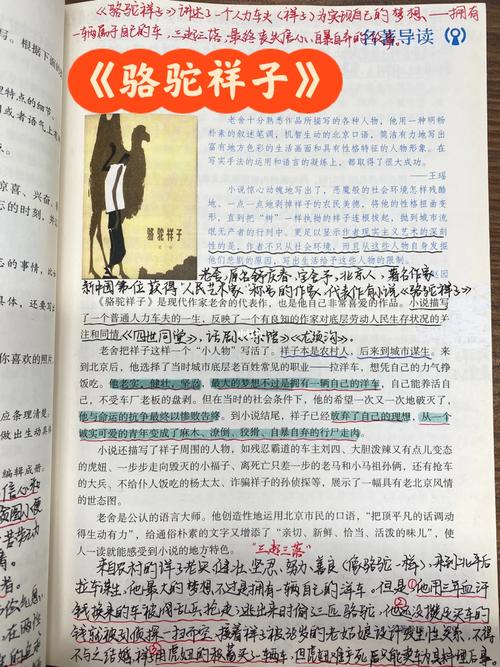 《骆驼祥子》讲述了一个人力车夫(祥子)为实现自己的梦想、——拥有
一辆属于自己的车,三起三落,最终丧失信心,自暴自弃的故事。
名著导读
《骆驼祥子》
写。根据下面的
理特点的细节。
惊喜、兴奋、
忘的时刻,并
忘的事情,比
具体,还要写
你喜爱的照片。
应条理清楚。
做出生动具体
编辑成册。
骆驼祥子
老舍十分熟悉作品所描写的各种人物,他用一种明畅
朴素的叙述笔调,机智生动的北京口语,简洁有力地写出
富有地方色彩的生活画面和具有性格特征的人物形象。在
写实手法的运用和语言的凝练上,都取得了很大成功。
——王瑶
小说惊心动魄地写出了,恶魔般的社会环境怎样残酷
地、一点一点地剥掉祥子的农民美德,将他的性格扭曲变
形,直到把“树”一样执拗的祥子连根拔起,抛到城市流
氓无产者的行列中。更足以显示作者现实主义艺术的深刻
性的是,作者不只从社会环境,而且从这些人物自身发掘
他们悲剧的原因,写出生活给予这些人物
老舍,原名舒庆春,字舍予,北京人,著名作家
新中国第一位获得“人民艺术家”称号的作家,代表作有小说《骆驼祥子》
《骆驼祥子》是现代作家老舍的代表作,也是他自己非常喜爱的作品。小说描写
了一个普通人力车夫的一生,反映了一个有良知的作家对底层劳动人民生存状况的关
注和同情。《四世同堂》,话剧《茶馆》《龙须沟》
老舍把祥子这样一个“小人物”写活了。祥子本是农村人,后来到城市谋生。来
到北京后,他选择了当时城市底层老百姓常见的职业——拉洋车,想凭自己的力气挣
饭吃。他老实,健壮,坚忍,最大的梦想不过是拥有一辆自己的洋车,自己能养活自
己,不受车厂老板的盘剥。但在当时的社会条件下,他的希望一次又一次地破灭了,
他与命运的抗争最终以惨败告终。到小说结尾,祥子已经放弃了自己的理想,从一个
诚实可爱的青年变成了麻木、潦倒、狡猾、自暴自弃的行尸走肉。
小说还描写了祥子周围的人物,如残忍霸道的车主刘四、大胆泼辣又有点儿变态
的虎妞、一步步走向毁灭的小福子、离死亡只差一步的老马和小马祖孙俩,还有抢车
的大兵、不给仆人饭吃的杨太太、诈骗祥子的孙侦探等,展示了一幅具有老北京风情
的世态图。
老舍是公认的语言大师。他创造性地运用北京市民的口语,“把顶平凡的话调动
得生动有力”,给通俗朴素的文字又增添了“亲切、新鲜、恰当、活泼的味儿”,使
人一读就能感受到小说的地方特色。 “三起三落”
来自农村的祥子老实、健壮、坚忍、努力、善良(像骆驼一样),来到北平后
拉车谋生,他最大的梦想不过是拥有一辆自己的洋车。但是①他用三年血汗
钱换来的车被乱兵抢走,逃出来时偷了三匹骆驼,②他还没攒够买车的
钱就被孙侦探一扫而空,接着祥子被38岁的老姑娘设计发生性关系,不得
不与之结婚,③用虎妞的私房钱买了一辆车,但虎妞难产死后为其料理后身